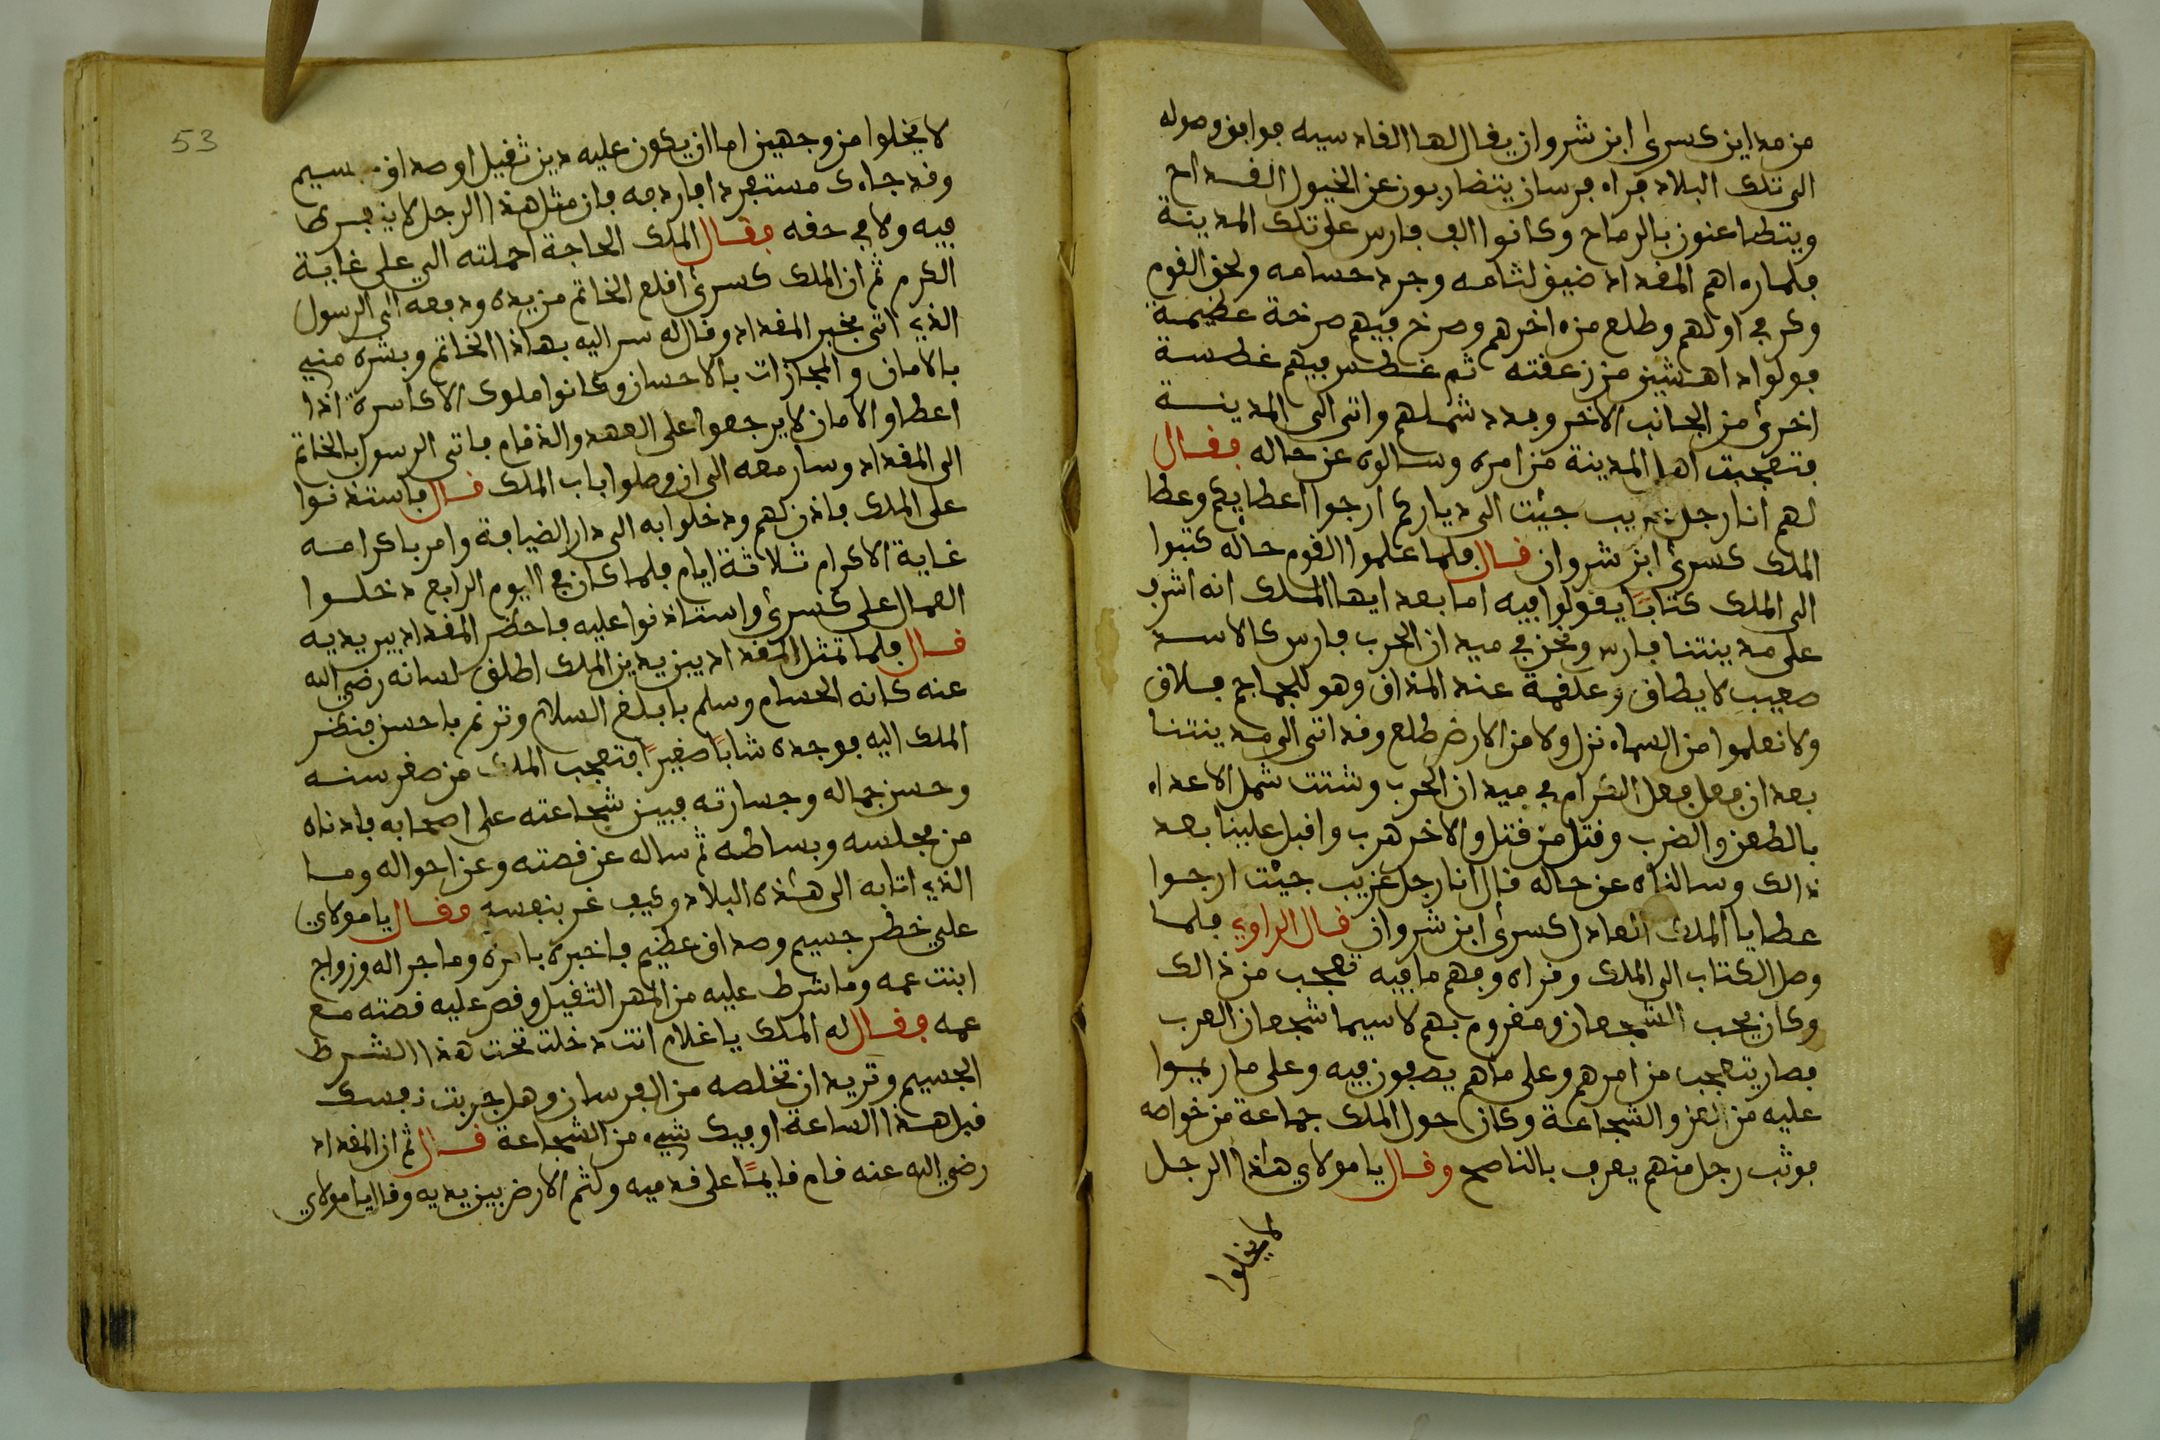 من مداين كسرى ابن شروان يقال لها القادسيه فوافق وصوله
الى تلك البلاد فراه فرسان يتضاربون عن الخيول القداح
ويتطاعنون بالرماح وكانوا الف فارس على تلك المدينة
فلما راهم المقداد ضيق لثامه وجرد حسامه ولحق القوم
وكر في اولهم وطلع من اخرهم وصرخ فيهم صرخة عظيمة
فولوا داهشين من زعقته ثم غطس فيهم غطسة
اخرى من الجانب الاخر وبدد شملهم واتى الى المدينة
فتعجبت اهل المدينة من امره وسالوه عن حاله فقال
لهم انا رجل غريب جئت الى دياركم ارجوا اعطايكم وعطا
الملك كسرى ابن شروان قال فلما علموا القوم حاله كتبوا
الى الملك كتابًا يقولوا فيه اما بعد ايها الملك انه اشرف
على مدينتنا فارس ونحن في ميدان الحرب فارس كالاسد
صعيب لا يطاق وعلقمة عند المذاق وهو للجماجم فلاق
ولا نعلموا من السماء نزل ولا من الارض طلع وقد اتى الى مدينتنا
بعد ان فعل فعل الكرام في ميدان الحرب وشتت شمل الاعداء
بالطعن والضرب وقتل من قتل والاخر هرب واقبل علينا بعد
ذالك وسالناه عن حاله قال انا رجل غريب جيئت ارجوا
عطايا الملك العادل كسرى ابن شروان قال الراوي فلما
وصل الكتاب الى الملك وقراه وفهم ما فيه تعجب من ذالك
وكان يحب الشجعان ومغروم بهم لا سيما شجعان العرب
فصار يتعجب من امرهم وعلى ما هم يصفون فيه وعلى ما ربيوا
عليه من العز والشجاعة وكان حول الملك جماعة من خواصه
فوثب رجل منهم يعرف بالناصح وقال يا مولاي هذا الرجل
لا يخلوا
53
لا يخلوا من وجهين اما ان يكون عليه دين ثقيل او صداق جسيم
وقد جاءك مستنجرد فارده فان مثل هذا الرجل لا ينفرط
فيه ولا في حقه فقال الملك الحاجة احملته الي على غاية
الكرم ثم ان الملك كسرى اقلع الخاتم من يده ودفعه الى الرسول
الذي اتى بخبر المقداد وقال له سر اليه بهذا الخاتم وبشره مني
بالامان والمجازات بالاحسان وكانوا ملوك الاكاسرة اذا
اعطاو الامان لا يرجعوا على العهد والذمام فاتى الرسول بالخاتم
الى المقداد وسار معه الى ان وصلوا باب الملك قال فاستذنوا
على الملك فاذن لهم ودخلوا به الى دار الضيافة وامر باكرامه
غاية الاكرام ثلاثة ايام فلما كان في اليوم الرابع دخلوا
العمال على كسرى واستاذنوا عليه فاحضر المقداد بين يديه
قال فلما تمثل المقداد بين يدين الملك اطلق لسانه رضي الله
عنه كانه الحسام وسلم بابلغ السلام وترنم باحسن فنظر
الملك اليه فوجده شابًا صغيرًا فتعجب الملك من صغر سنه
وحسن جماله وجسارته فبين شجاعته على اصحابه فادناه
من مجلسه وبساطه ثم ساله عن قصته وعن احواله وما
الذي اتا به الى هذه البلاد وكيف غر بنفسه فقال يا مولاي
علي خطر جسيم وصداق عظيم فاخبره بامره وما جرا له وزواج
ابنت عمه وما شرط عليه من المهر الثقيل وقص عليه قصته مع
عمه فقال له الملك يا غلام انت دخلت تحت هذا الشرط
الجسيم وتريد ان تخلصه من الفرسان وهل جربت نفسك
قبل هذا الساعة او فيك شيء من الشجاعة قال ثم ان المقداد
رضي الله عنه قام قايمًا على قدميه ولثم الارض بين يديه وقال يا مولاي